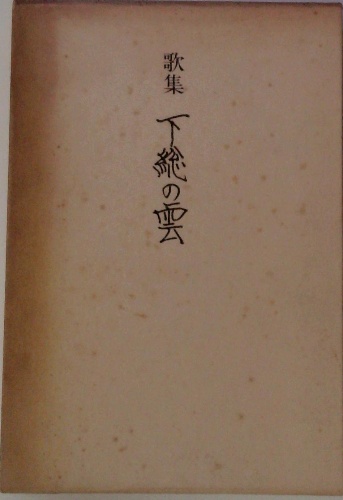 歌集 下総の雲